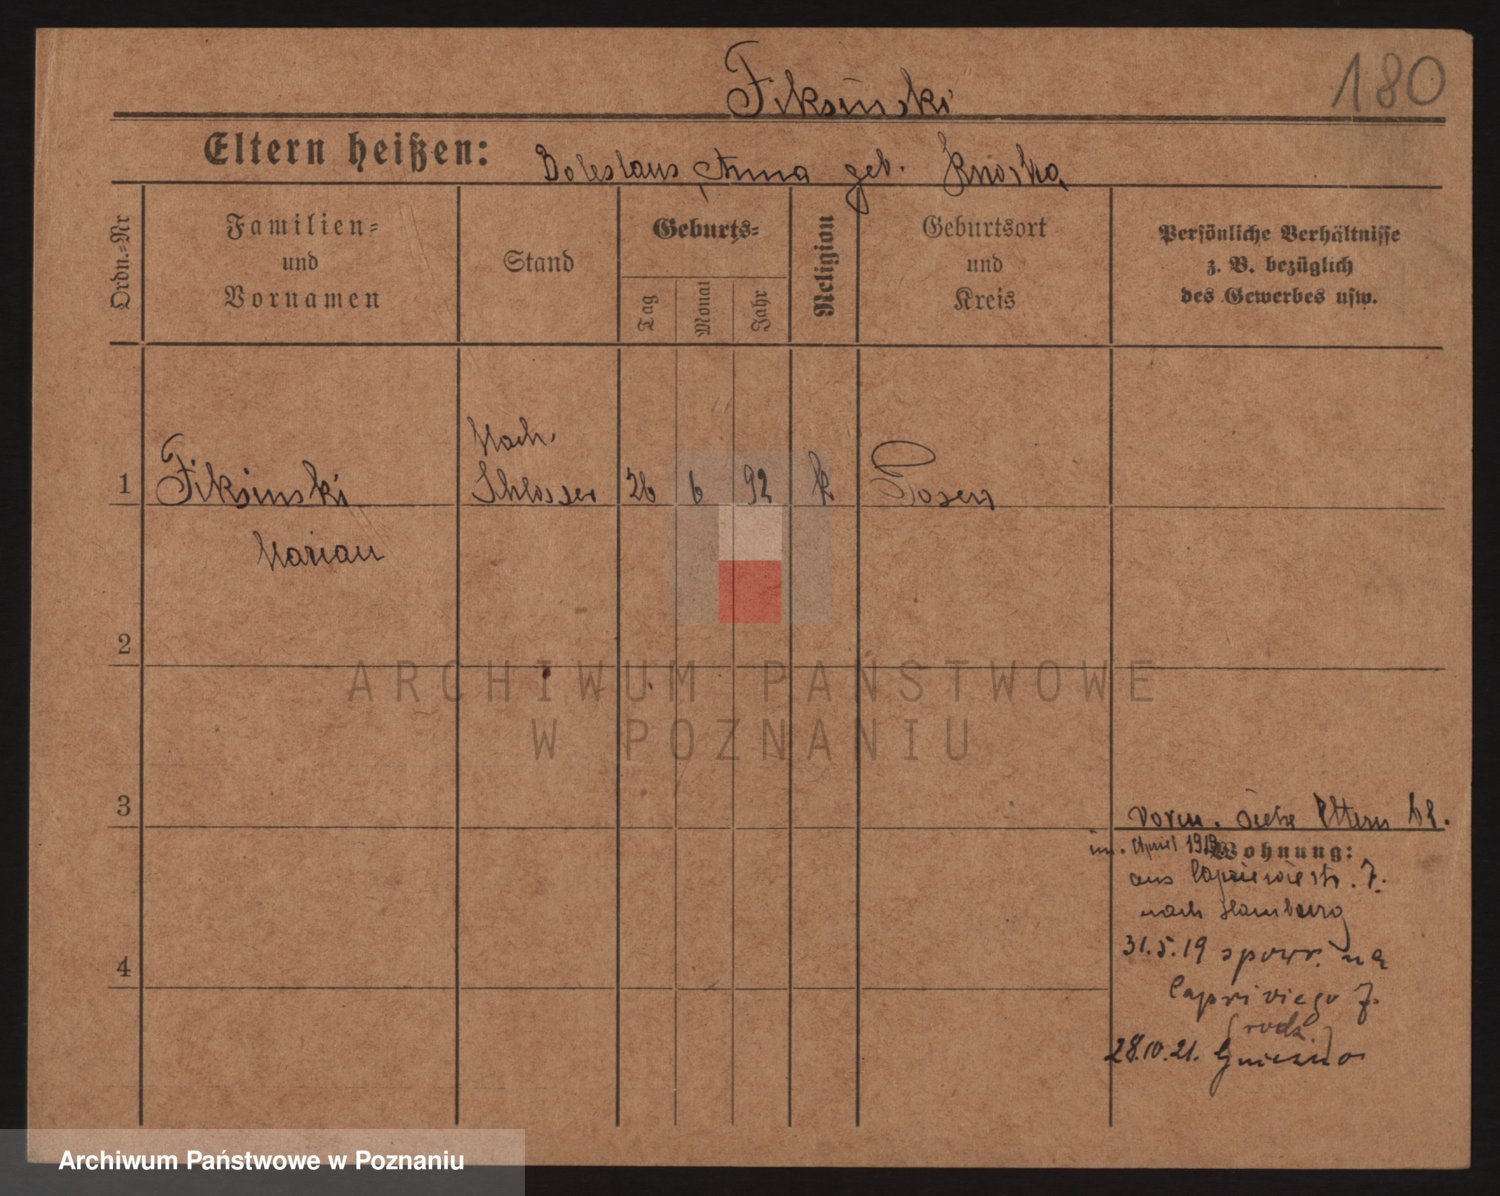 180
Fiksinski
Eltern heißen: Boleslaus, Anna geb.
Ordn.=Nr
Familien=
und
Vornamen
Stand
Geburts=
Tag
Monat
Jahr
Religion
Geburtsort
und
Kreis
Persönliche Verhältnisse
z. B. bezüglich
des Gewerbes usw.
Masch.
1 Fiksinski Schlosser 26 6 92 k Posen
Marian
2
3
4
vorm. siehe Eltern bl.
im. April 1919
Wohnung:
aus Caprivistr. 7.
nach Hamburg
31.5.19 spowr. na
Capriviego 7.
(rodz.)
28.10.21. Gniezno
ARCHIWUM PAŃSTWOWE
W POZNANIU
Archiwum Państwowe w Poznaniu